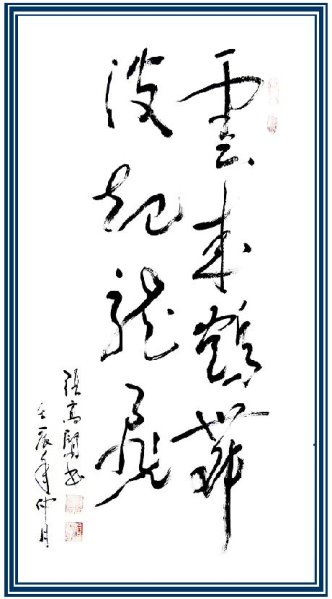 雲來鶴舞
波起龍飛
張高賢書
壬辰年仲月